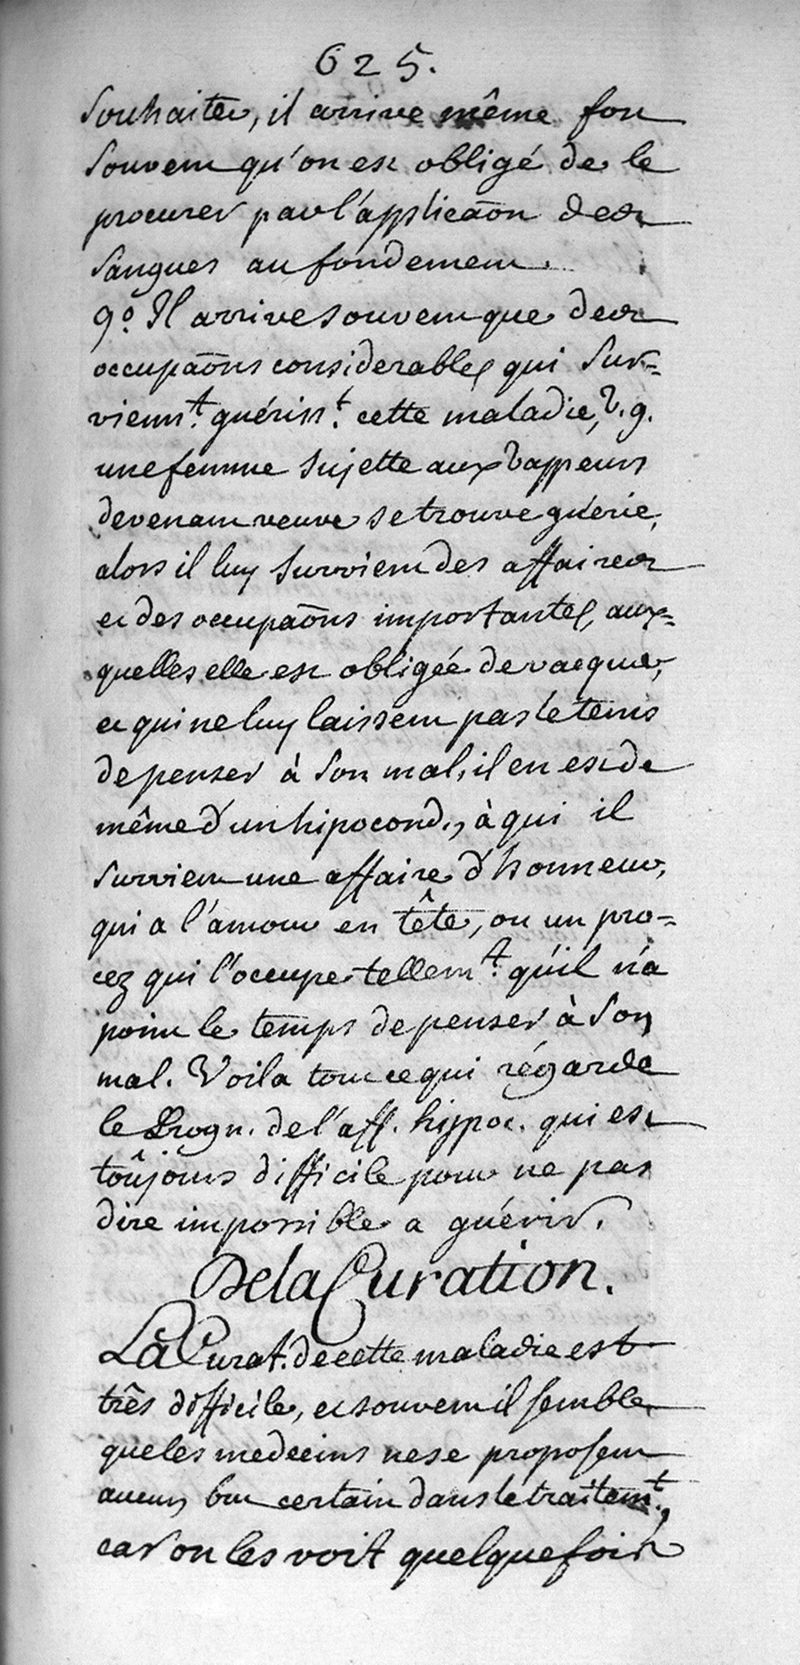 625.
souhaiter, il arrive même fort
souvent qu'on est obligé de le
procurer par l'applicaōn des
sangues au fondement.
9.º Il arrive souvent que des
occupaōns considerables qui sur=
vienn.t guériss.t cette maladie, v. g.
une femme sujette aux vappeurs
devenant veuve se trouve guérie,
alors il luy survient des affaires
et des occupaōns importantes, aux=
quelles elle est obligée de vacquer,
et qui ne luy laissent pas le tems
de penser à son mal, il en est de
même d'un hipocond., à qui il
survient une affaire d'honneur,
qui a l'amour en tête, ou un pro=
cez qui l'occupe tellem.t qu'il n'a
point le temps de penser à son
mal. Voila tout ce qui régarde
le Progn. de l'aff. hypoc. qui est
toûjours difficile pour ne pas
dire impossible a guérir.
De la Curation.
La Curat. de cette maladie est
três difficile, et souvent il semble
que les medecins ne se proposent
aucun but certain dans le traitem.t,
car on les voit quelquefois